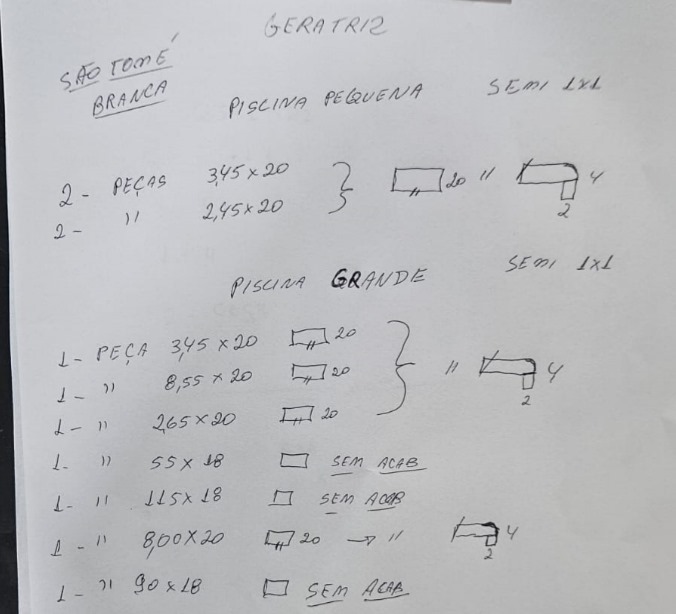 GERATRIZ
SÃO TOMÉ
BRANCA
PISCINA PEQUENA
SEMI 1x1
2 - PEÇAS 3,45 x 20
2 - " 2,45 x 20
20 " 4
2
PISCINA GRANDE
SEMI 1x1
1 - PEÇA 3,45 x 20 20
1 - " 8,55 x 20 20
1 - " 2,65 x 20 20
" 4
2
1 - " 55 x 18 SEM ACAB
1 - " 115 x 18 SEM ACAB
1 - " 8,00 x 20 20 → " 4
2
1 - " 90 x 18 SEM ACAB